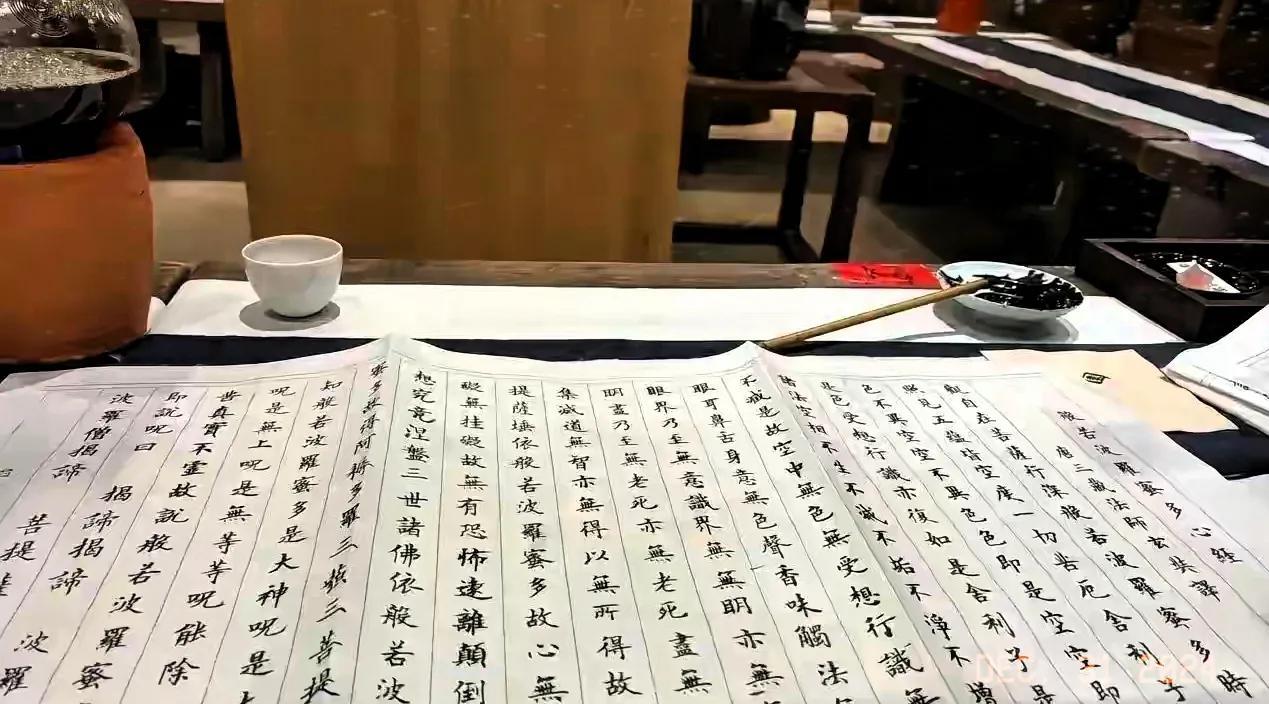 般若波羅蜜多心経
唐三藏法師玄奘譯
觀自在菩薩行深般若波羅蜜多時
照見五蘊皆空度一切苦厄舍利子
色不異空空不異色色即是空空即
是色受想行識亦復如是舍利子是
諸法空相不生不滅不垢不淨不增
不減是故空中無色無受想行識無
眼耳鼻舌身意無色聲香味觸法
眼界乃至無意識界無無明亦無
明盡乃至無老死亦無老死盡無
集滅道無智亦無得以無所得故
提薩埵依般若波羅蜜多故心無
礙無挂礙故無有恐怖遠離顛倒
想究竟涅盤三世諸佛依般若波
蜜多故得阿耨多羅三藐三菩提
知般若波羅蜜多是大神呪是大
呪是無上呪是無等等呪能除
世真實不虛故說般若波羅蜜
即說呪曰 揭諦揭諦 波羅
波羅僧揭諦 菩提薩
DEC. 31 2024